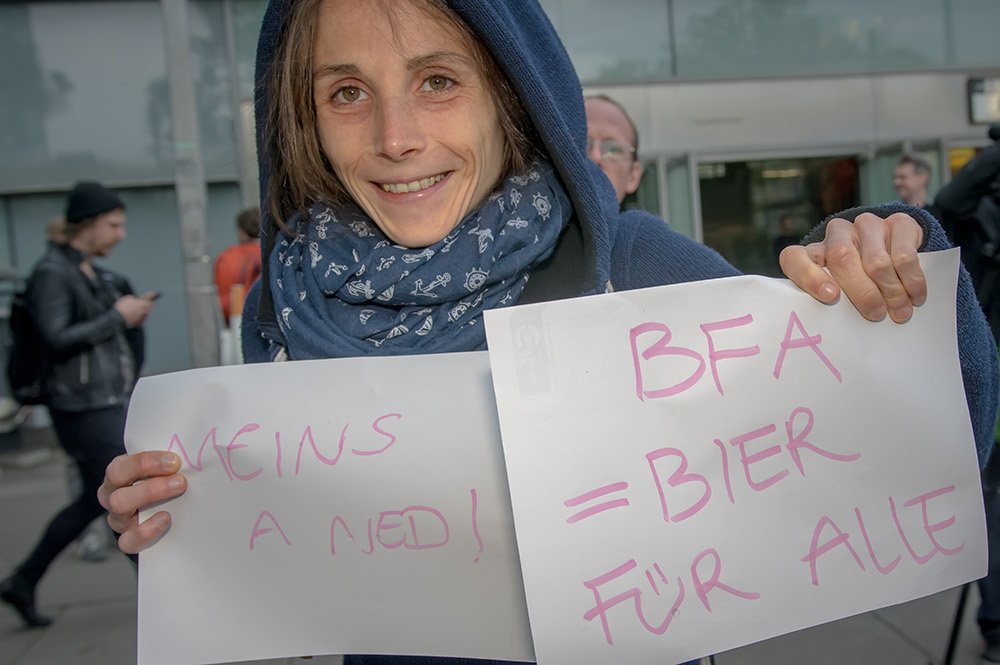 MEINS
A NED!
BFA
= BIER
FÜR ALLE